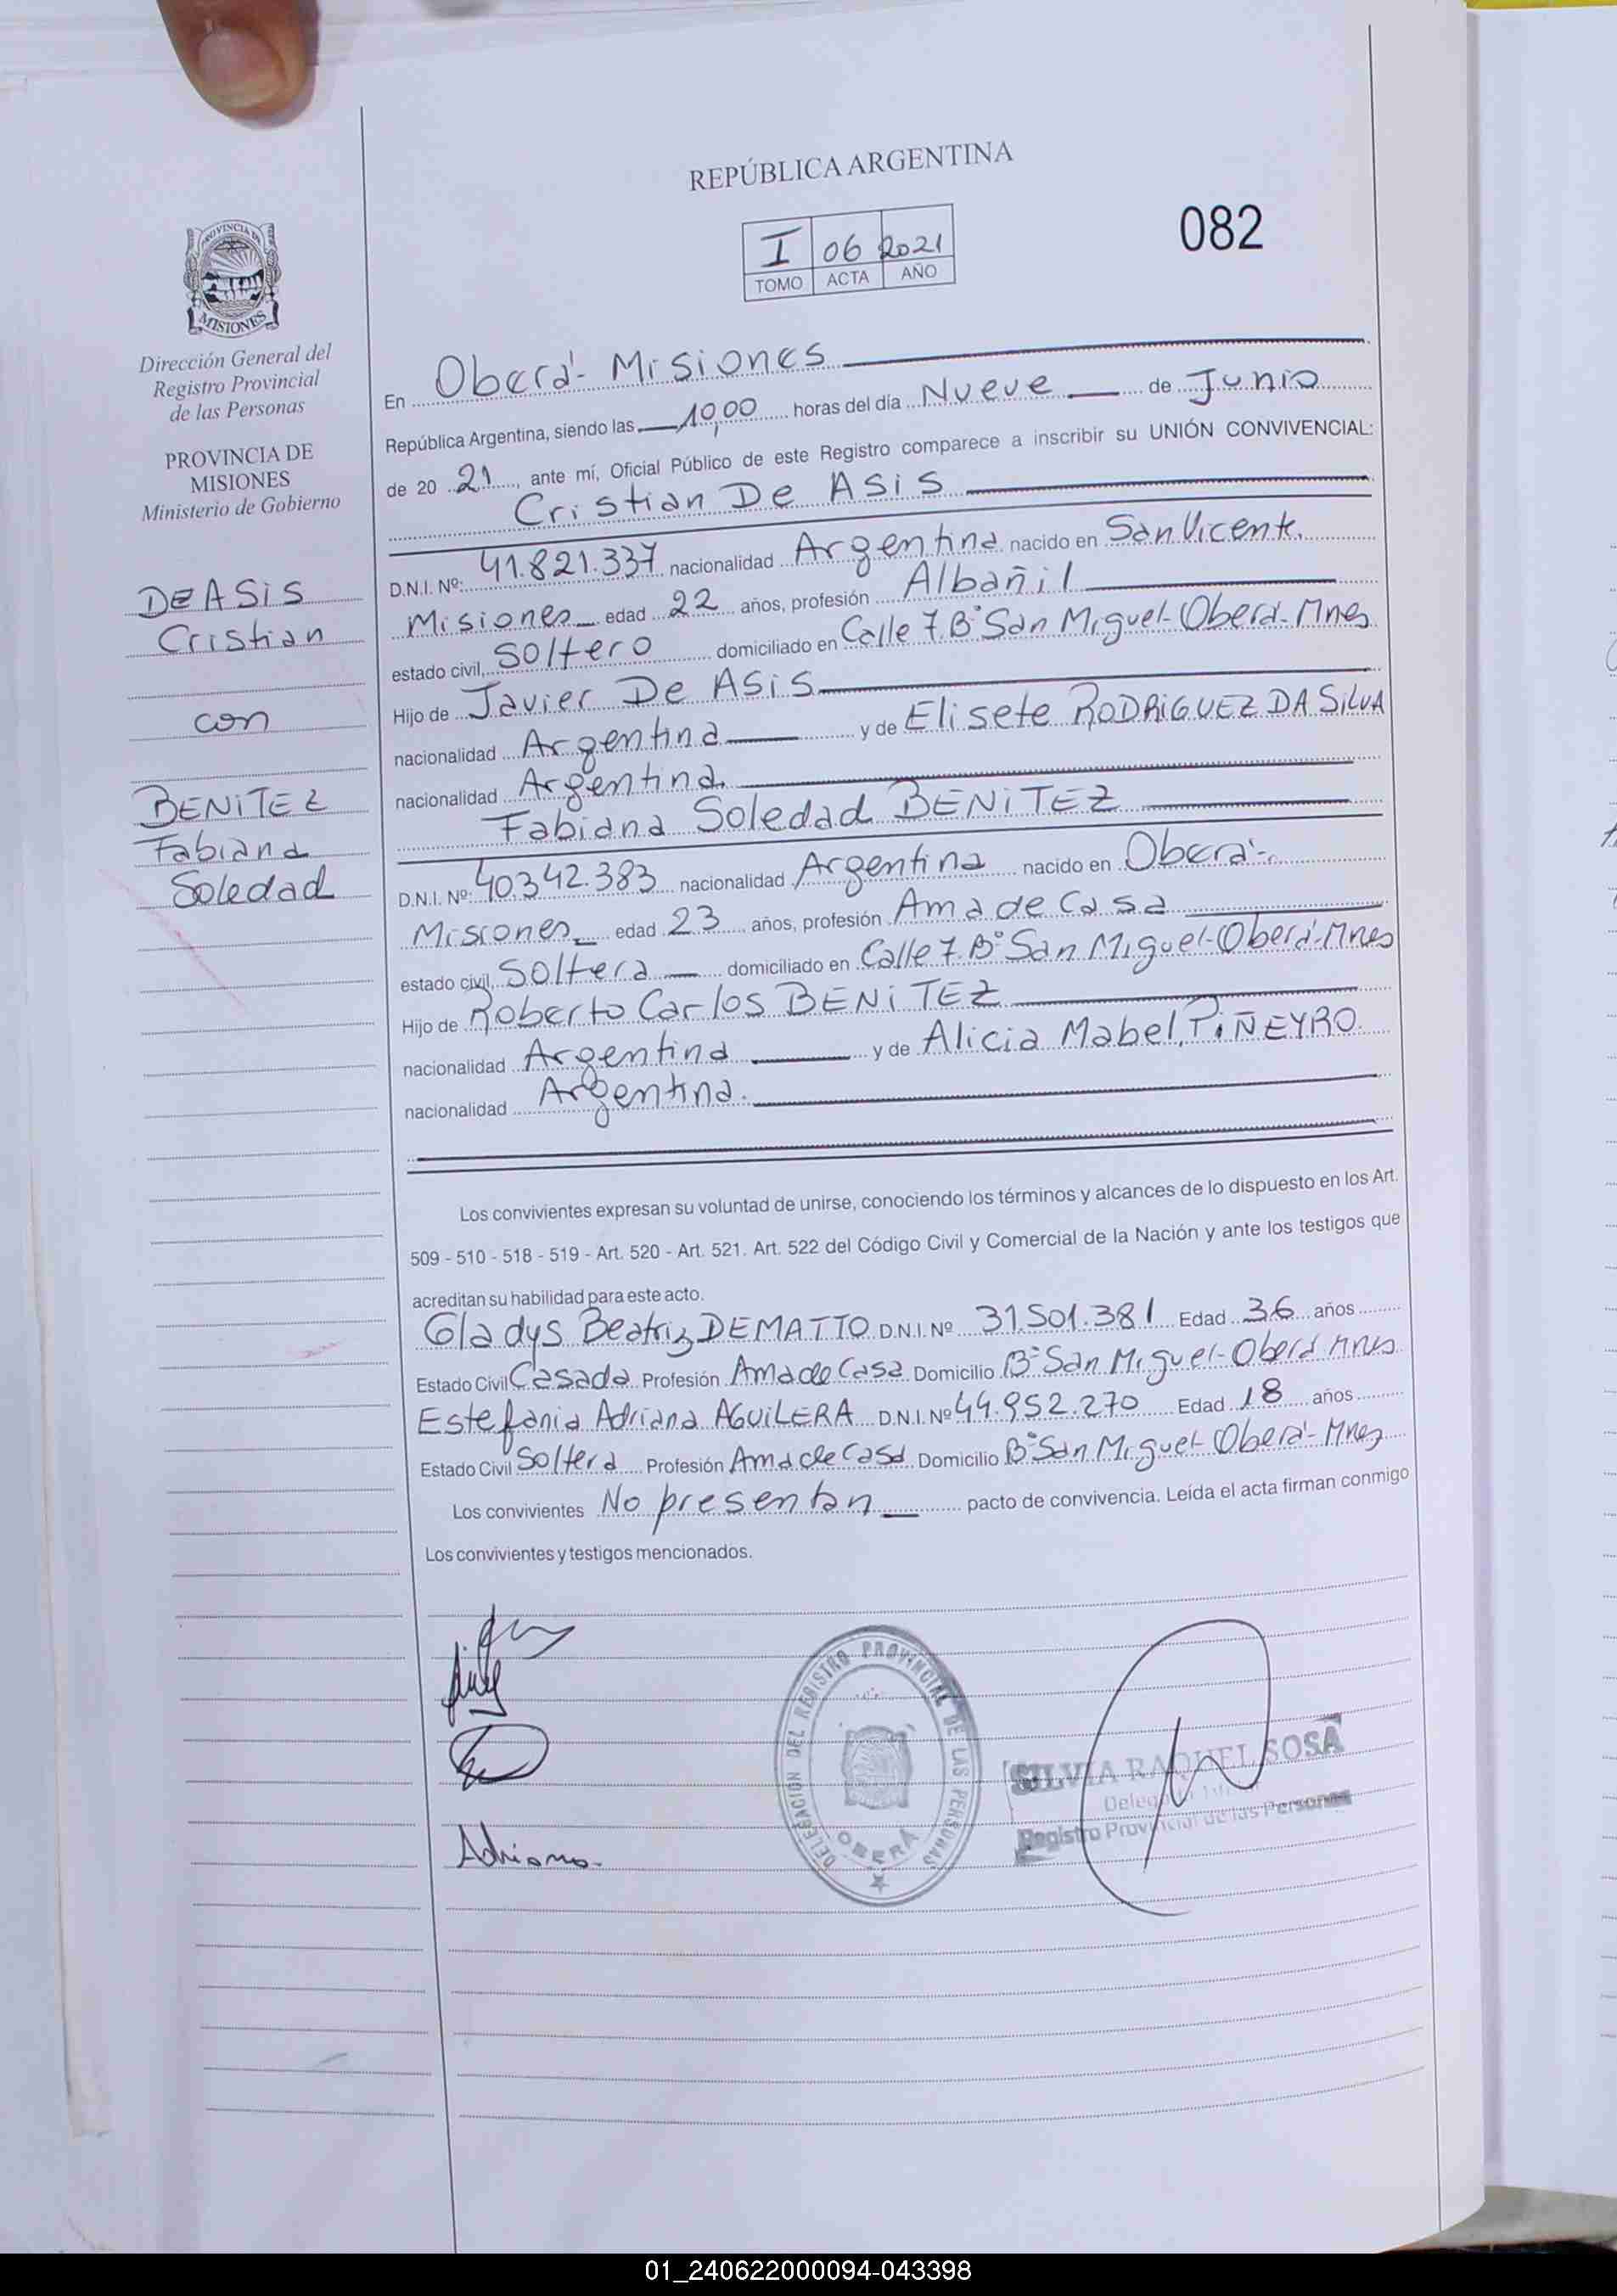 REPÚBLICA ARGENTINA
082
I 06 2021
TOMO ACTA AÑO
PROVINCIA DE
MISIONES
Dirección General del
Registro Provincial
de las Personas
PROVINCIA DE
MISIONES
Ministerio de Gobierno
DE ASIS
Cristian
con
BENITEZ
Fabiana
Soledad
En Oberá - Misiones
República Argentina, siendo las 10,00 horas del día Nueve de Junio
de 20 21, ante mí, Oficial Público de este Registro comparece a inscribir su UNIÓN CONVIVENCIAL:
Cristian De ASIS
D.N.I. Nº: 41.821.337 nacionalidad Argentina nacido en San Vicente.
Misiones edad 22 años, profesión Albañil
estado civil, Soltero domiciliado en Calle 7. Bº San Miguel - Oberá - Mnes
Hijo de Javier De ASIS
nacionalidad Argentina y de Elisete RODRIGUEZ DA SILVA
nacionalidad Argentina.
Fabiana Soledad BENITEZ
D.N.I. Nº: 40.342.383 nacionalidad Argentina nacido en Oberá -
Misiones edad 23 años, profesión Ama de Casa
estado civil, Soltera domiciliado en Calle 7. Bº San Miguel - Oberá - Mnes
Hijo de Roberto Carlos BENITEZ
nacionalidad Argentina y de Alicia Mabel, PIÑEYRO
nacionalidad Argentina.
Los convivientes expresan su voluntad de unirse, conociendo los términos y alcances de lo dispuesto en los Art.
509 - 510 - 518 - 519 - Art. 520 - Art. 521. Art. 522 del Código Civil y Comercial de la Nación y ante los testigos que
acreditan su habilidad para este acto.
Gladys Beatriz DEMATTO D.N.I. Nº 31.501.381 Edad 36 años
Estado Civil Casada Profesión Ama de Casa Domicilio Bº San Miguel - Oberá Mnes
Estefania Adriana AGUILERA D.N.I. Nº 44.952.270 Edad 18 años
Estado Civil Soltera Profesión Ama de Casa Domicilio Bº San Miguel - Oberá - Mnes
Los convivientes No presentan pacto de convivencia. Leída el acta firman conmigo
Los convivientes y testigos mencionados.
DELEGACION DEL REGISTRO PROVINCIAL DE LAS PERSONAS
OBERÁ
SILVIA RAQUEL SOSA
Registro Provincial de las Personas
Adriana
01_240622000094-043398